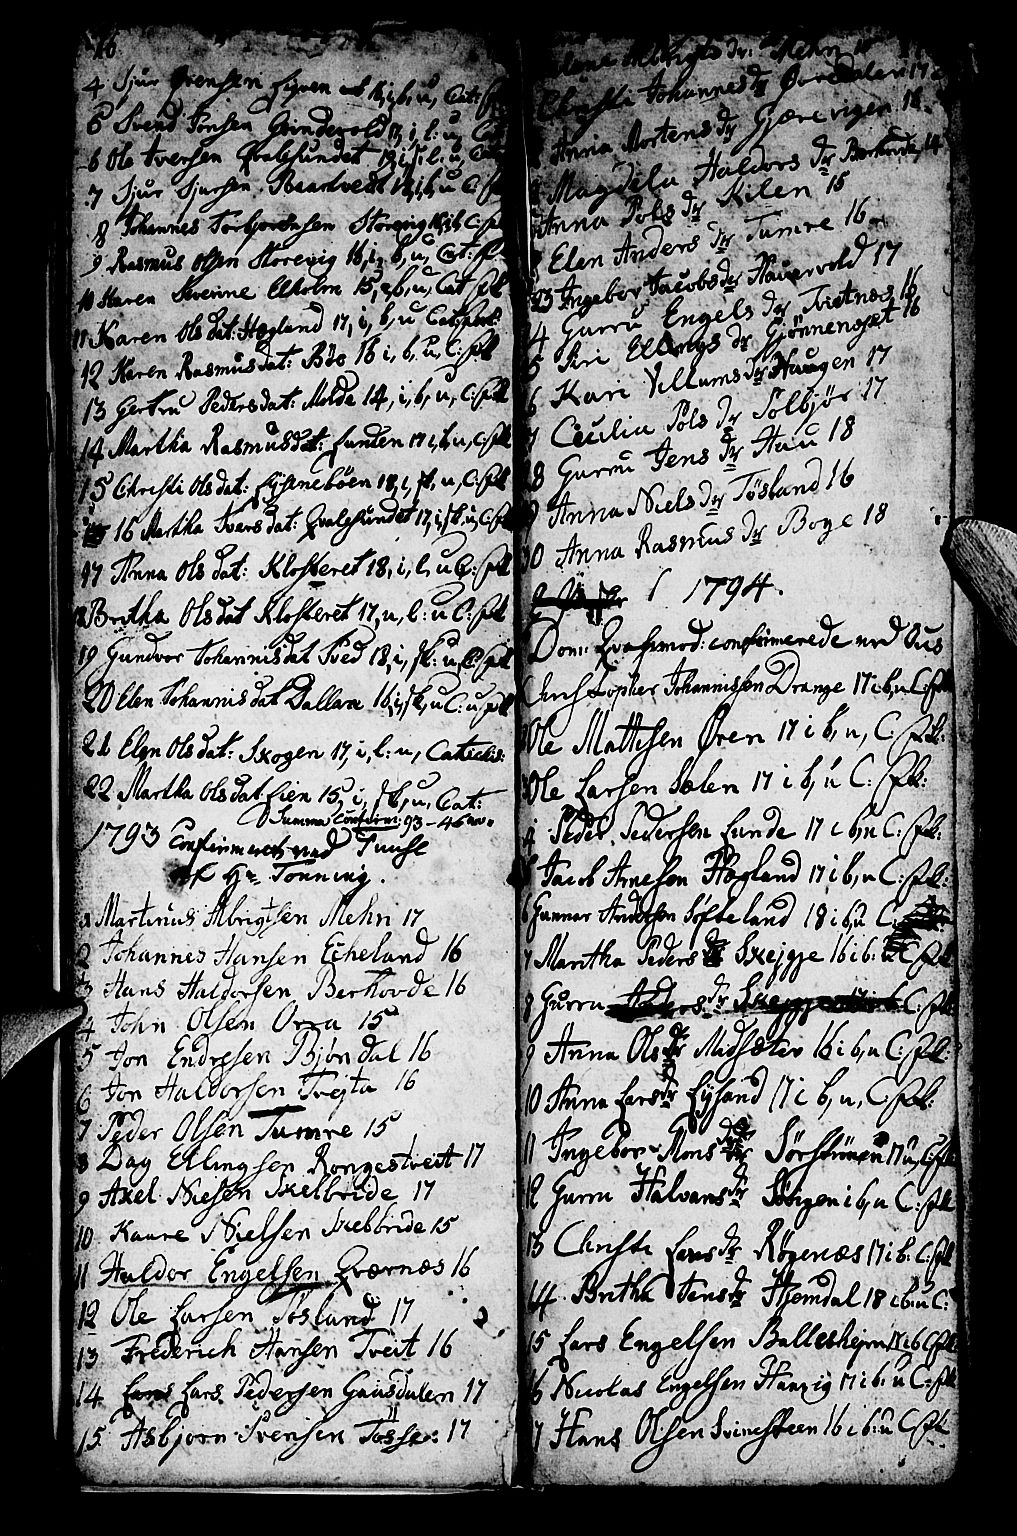 16
4 Sjur Svensen Lien 16, i, b, u, Cat: fl
5 Svend Jonsen Grindevold 17, i, l: u, Cat
6 Ole Iversen Qvalesundet 19 i, sk: u, Cat
7 Sjur Sjursen Baartvedt 17, i, b, u C: fl
8 Johannes Torbjørensen Storevig C: fl
9 Rasmus Olsen Storevig 16, i, b, u, Cat: fl
10 Karen Severine Elholm 15, b, u, Cat fl
11 Karen Olsdat: Hægland 17, i, b, u Cat:
12 Karen Rasmusdat: Böe 16 i, b, u, C: fl
13 Gertru Pedersdat: Molde 14, i, b, u, C: fl
14 Martha Rasmusdat: Lunden 17 i, b, u, C: fl
15 Christi Olsdat: Eysineböen 18, i, sk, u, C: fl
16 Martha Iversdat: Qvalesundet 17, i, sk, u, C: fl
17 Anna Olsdat: Klosteret 18, i, l, u C: fl
18 Britha Olsdat Klosteret 17, u, l: u C: fl
19 Gundvor Johannisdat Sved 18, i, sk: u, C: fl
20 Elen Johannisdat Dallan 16, i, sk, u C: u, fl
21 Elen Olsdat: Skogen 17, i, l: u, Catechis:
22 Martha Olsdat Lien 15, i, sk, u, Cat:
Summa Confirm: 93 – 46
1793 Confirmeret ved Tuusl
af Hr Tonning.
1 Martinus Albrigtsen Mehn 17
2 Johannes Hansen Echeland 16
3 Hans Haldorsen Berhovde 16
4 John Olsen Orra 15
5 Jon Endresen Bjørndal 16
6 Jon Haldorsen Tvejta 16
7 Peder Olsen Tumre 15
8 Dag Ellingsen Rongestveit 17
9 Axel Nielsen Skelbride 17
10 Kaare Nielsen Skelbride 15
11 Haldor Engelsen Qværnæs 16
12 Ole Larsen Tösland 17
13 Frederich Hansen Tveit 16
14 Lars Pedersen Gausdalen 17
15 Asbjørn Svensen Tösse: 17
Albrigts dr: Mehn
Christi Johannes dr Øvredalen 17
Anna Mortens dr Gjærevigen 16
Magdela Haldors dr Berhovde, 14
Anna Pols dr Kilen 15
Elen Anders dr Tumre 16
23 Ingebor Jacobs dr Hauervold 17
4 Gurru Engels dr Tvetnæs 16
5 Kri Ellings dr Gjönnensæt 16
6 Kari Villums dr Haugen 17
7 Cecilia Pols dr Solbjør 17
28 Gurru Jens dr Hau 18
Anna Niels dr Tösland 16
30 Anna Rasmus dr Boge 18
1794.
Dom: Qvasimod: confirmerede ved Aus
Christopher Johannissen Drange 17 i b, u C: fl
Ole Mattesen Øren 17 i b, u, C: fl:
Ole Larsen Sælen 17 i b, u C: fl:
4 Peder Pedersen Lunde 17 i b, u C: fl:
Jacob Arnesen Hægland 17 i b, u C: fl:
6 Gunnar Andersen Søfteland 18 i b, u C:
7 Maritha Peders dr Skejgje 16 i b: C fl
8 Gurru C: fl
9 Anna Ols dr Midsæter 16 i b, u C: fl:
10 Anna Lars dr Lysand 17 i b, u, C fl:
11 Ingebor Mons dr Sörströnen 17 u, C: fl
12 Gurru Halvans dr Sövigen i b, u C: fl
13 Christi Lars dr Røgenæs 17 i b: C: fl
14 Britha Jens dr Hjemdal 18 i b: u C:
15 Lars Engelsen Ballesheim 17 i b C fl:
16 Nicolas Engelsen Hanvig 17 i b: u C: fl
17 Hans Olsen Svinesteen 16 i b: u C fl